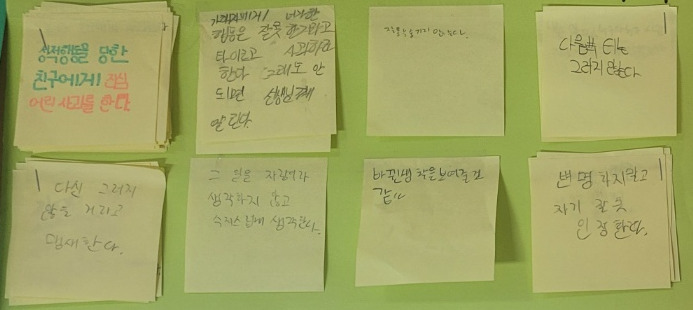 성적행동을 당한
친구에게 진심
어린 사과를 한다.
가해자에게 너가한
행동은 잘못한거라고
타이르고 사과하라
한다 그래도 안
되면 선생님께
말한다.
않는다.
다음부터는
그러지 않는다
다신 그러지
않을 거라고
맹세한다.
그 일을 자랑이라
생각하지 않고
수치스럽게 생각한다.
바뀐생각을보여줄것
같다
변명하지말고
자기 잘못
인정한다.